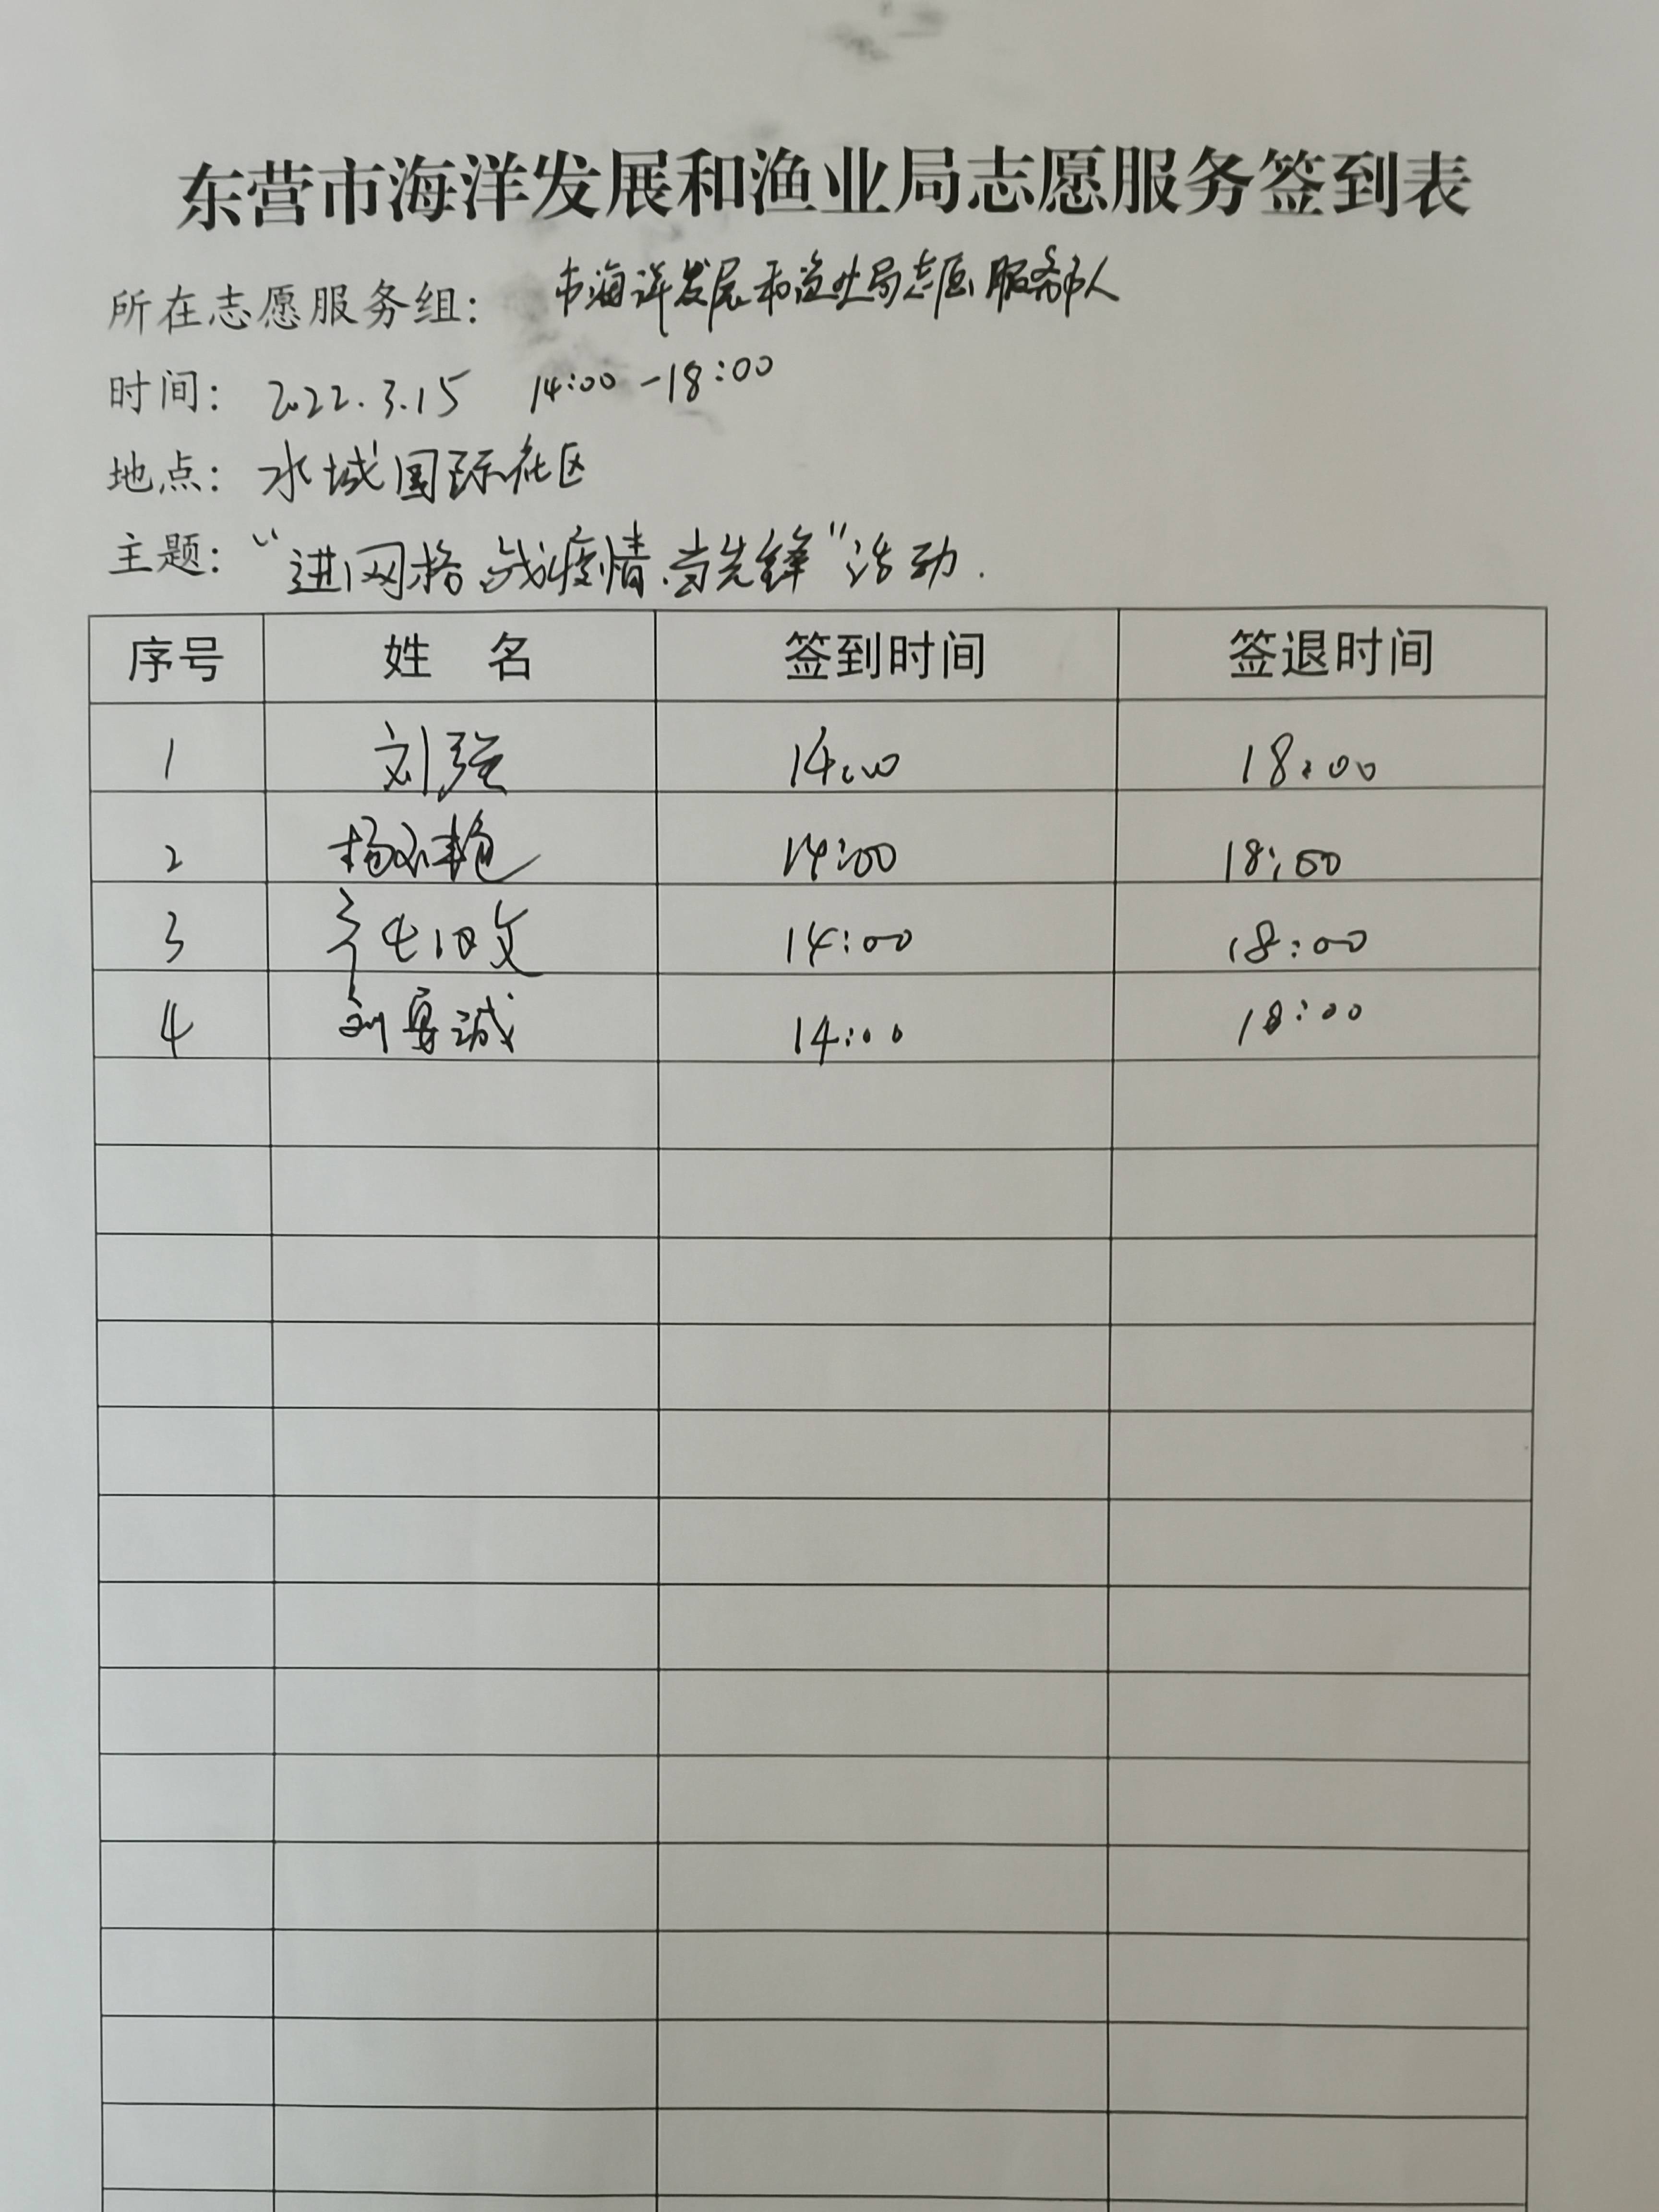 东营市海洋发展和渔业局志愿服务签到表
所在志愿服务组: 市海洋发展和渔业局志愿服务队
时间: 2022.3.15 14:00-18:00
地点: 水城国际社区
主题: "进网格、战疫情、当先锋"活动.
序号 姓 名 签到时间 签退时间
1 刘强 14:00 18:00
2 杨 艳 14:00 18:00
3 14:00 18:00
4 刘 诚 14:00 18:00